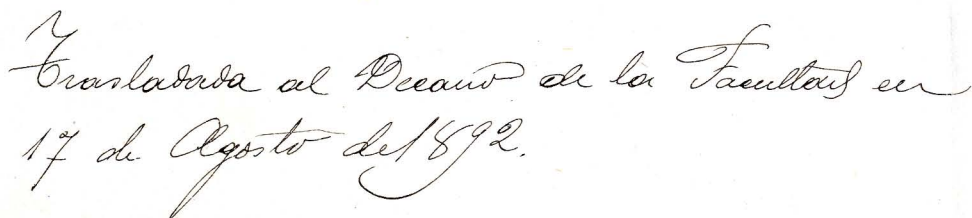 Trasladada al Decano de la Facultad en
17 de Agosto de 1892.